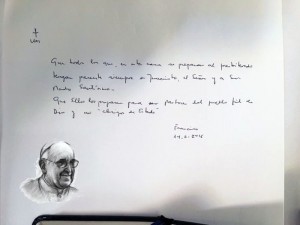 Que todos los que, en esta casa se preparan al presbiterado
tengan presente siempre a Jesucristo, el Señor y a su
Madre Santísima.
Que Ellos los preparen para ser pastores del pueblo fiel de
Dios y no "clérigos de Estado"
Francisco